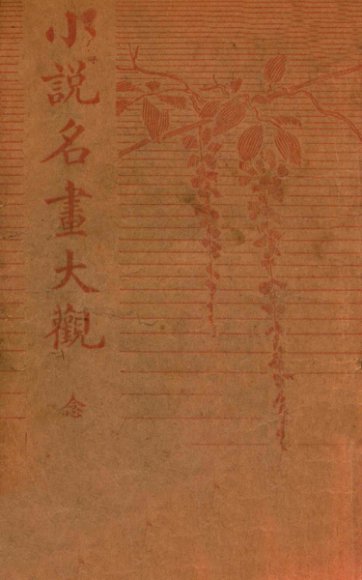 小説名畫大觀
念